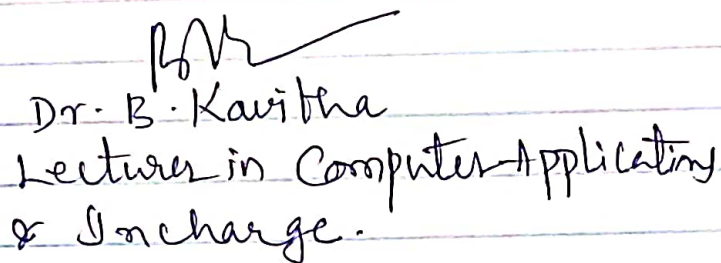 Dr. B. Kavitha
Lecturer in Computer Applications
& Incharge.